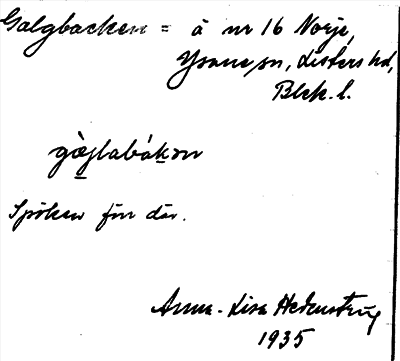 Galgbacken = å nr 16 Norje,
Ysane sn, Listers hd,
Blek. l.
gàglabákən
Spöken för där.
Anna-Lisa Hedenstrüg
1935